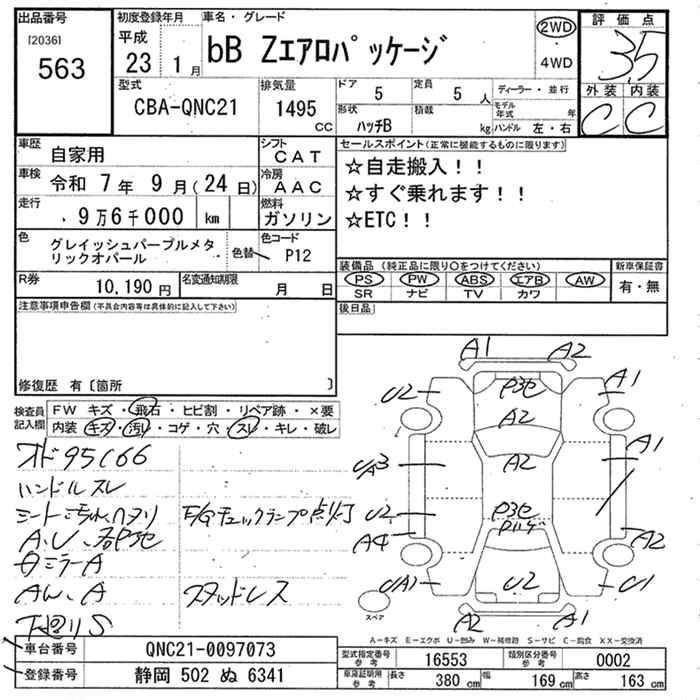 出品番号
[2036]
563
初度登録年月
平成
23 1月
車名・グレード
bB Zエアロパッケージ
2WD
・
4WD
評価点
3.5
外装 内装
C C
型式
CBA-QNC21
排気量
1495
CC
ドア 5
定員 5 人
形状 ハッチB
積載 kg
ディーラー・並行
モデル年式 年
ハンドル 左・右
車歴 自家用
シフト CAT
車検 令和 7年 9月(24日)
冷房 AAC
走行 9万6千000 km
燃料 ガソリン
色 グレイッシュパープルメタリックオパール
色替
色コード P12
R券 10,190円
名変通知期限 月 日
セールスポイント(正常に機能するものに限ります)
☆自走搬入!!
☆すぐ乗れます!!
☆ETC!!
装備品(純正品に限り〇をつけてください)
新車保証書
PS PW ABS エアB AW
SR ナビ TV カワ
有・無
後日品
注意事項申告欄(不具合内容等は具体的に記入して下さい)
修復歴 有〔箇所 〕
検査員記入欄
FW キズ・飛石・ヒビ割・リペア跡・×要
内装 キズ・汚れ・コゲ・穴・スレ・キレ・破レ
ハンドルスレ
F/Gチェックランプ点灯
ミラーA
AW、A
スタッドレス
下廻りS
A1 A2
U2 A1
A2
A2
A1
U2
A4 A2
U2
UA1 U1
A2 A1
スペア
A-キズ E-エクボ U-凹み W-補修跡 S-サビ C-腐食 XX-交換済
車台番号 QNC21-0097073
登録番号 静岡 502 ぬ 6341
型式指定番号 参考 16553
類別区分番号 参考 0002
車庫証明用 参考
長さ 380 cm
幅 169 cm
高さ 163 cm